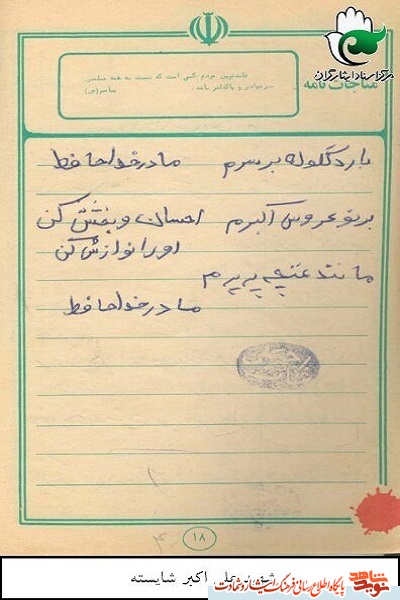 مرکز اسناد ایثارگران
مناجات نامه
عابدترین مردم کسی است که نسبت به همه مسلمین
و پاکدلتر باشد.
پیامبر(ص)
بارد گلوله بر سرم مادر خداحافظ
بر نو عروس اکبرم احسان و بخشش کن
او را نوازش کن
مانند غنچه پرپرم
مادر خداحافظ
۱۸
علی اکبر شایسته
پایگاه اطلاع رسانی فرهنگ ایثار و شهادت
نوید شاهد